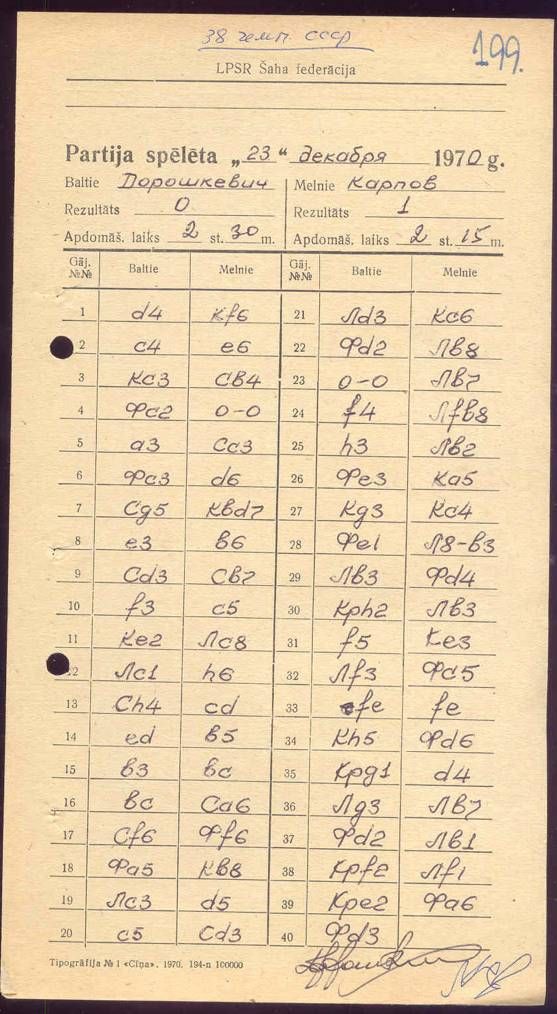 38 чемп. СССР
199.
LPSR Šaha federācija
Partija spēlēta „23“ декабря 1970 g.
Baltie Дорошкевич Melnie Карпов
Rezultāts 0 Rezultāts 1
Apdomāš. laiks 2 st. 30 m. Apdomāš. laiks 2 st. 15 m.
Gāj. №№ Baltie Melnie Gāj. №№ Baltie Melnie
1 d4 Кf6 21 Лd3 Кc6
2 c4 e6 22 Фd2 Лв8
3 Кc3 Cв4 23 0-0 Лв7
4 Фc2 0-0 24 f4 Лfв8
5 a3 Cc3 25 h3 Лв2
6 Фc3 d6 26 Фe3 Кa5
7 Cg5 Квd7 27 Кg3 Кc4
8 e3 в6 28 Фe1 Л8-в3
9 Cd3 Cв7 29 Лв3 Фd4
10 f3 c5 30 Крh2 Лв3
11 Кe2 Лc8 31 f5 Кe3
12 Лc1 h6 32 Лf3 Фd5
13 Ch4 cd 33 fe fe
14 ed в5 34 Кh5 Фd6
15 в3 вc 35 Крg1 d4
16 вc Ca6 36 Лg3 Лв7
17 Cf6 Фf6 37 Фd2 Лв1
18 Фa5 Кв8 38 Крf2 Лf1
19 Лc3 d5 39 Крe2 Фa6
20 c5 Cd3 40 Фd3
Tipogrāfija № 1 «Cīņa». 1970. 194-n 100000